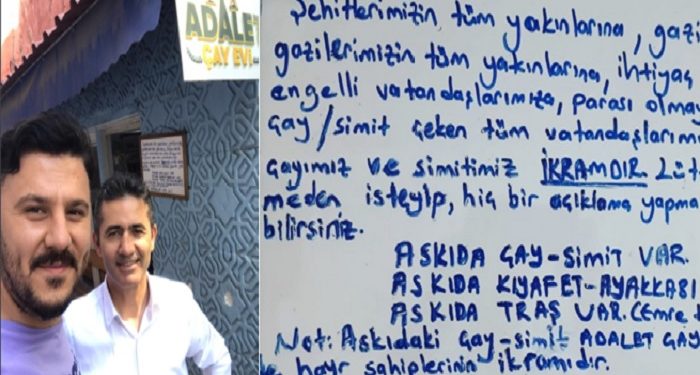 ADALET
ÇAY EVİ
Şehitlerimizin tüm yakınlarına, gazi
gazilerimizin tüm yakınlarına, ihtiyaç
engelli vatandaşlarımıza, parası olma
Çay/simit çeken tüm vatandaşlarım
çayımız ve simitimiz İKRAMDIR. Lüt
meden isteyip, hiç bir açıklama yapma
bilirsiniz.
ASKIDA ÇAY-SİMİT VAR.
ASKIDA KIYAFET-AYAKKABI
ASKIDA TRAŞ VAR. (Emre
Not: Askıdaki Çay-simit ADALET ÇAY
hayır sahiplerinin ikramıdır.